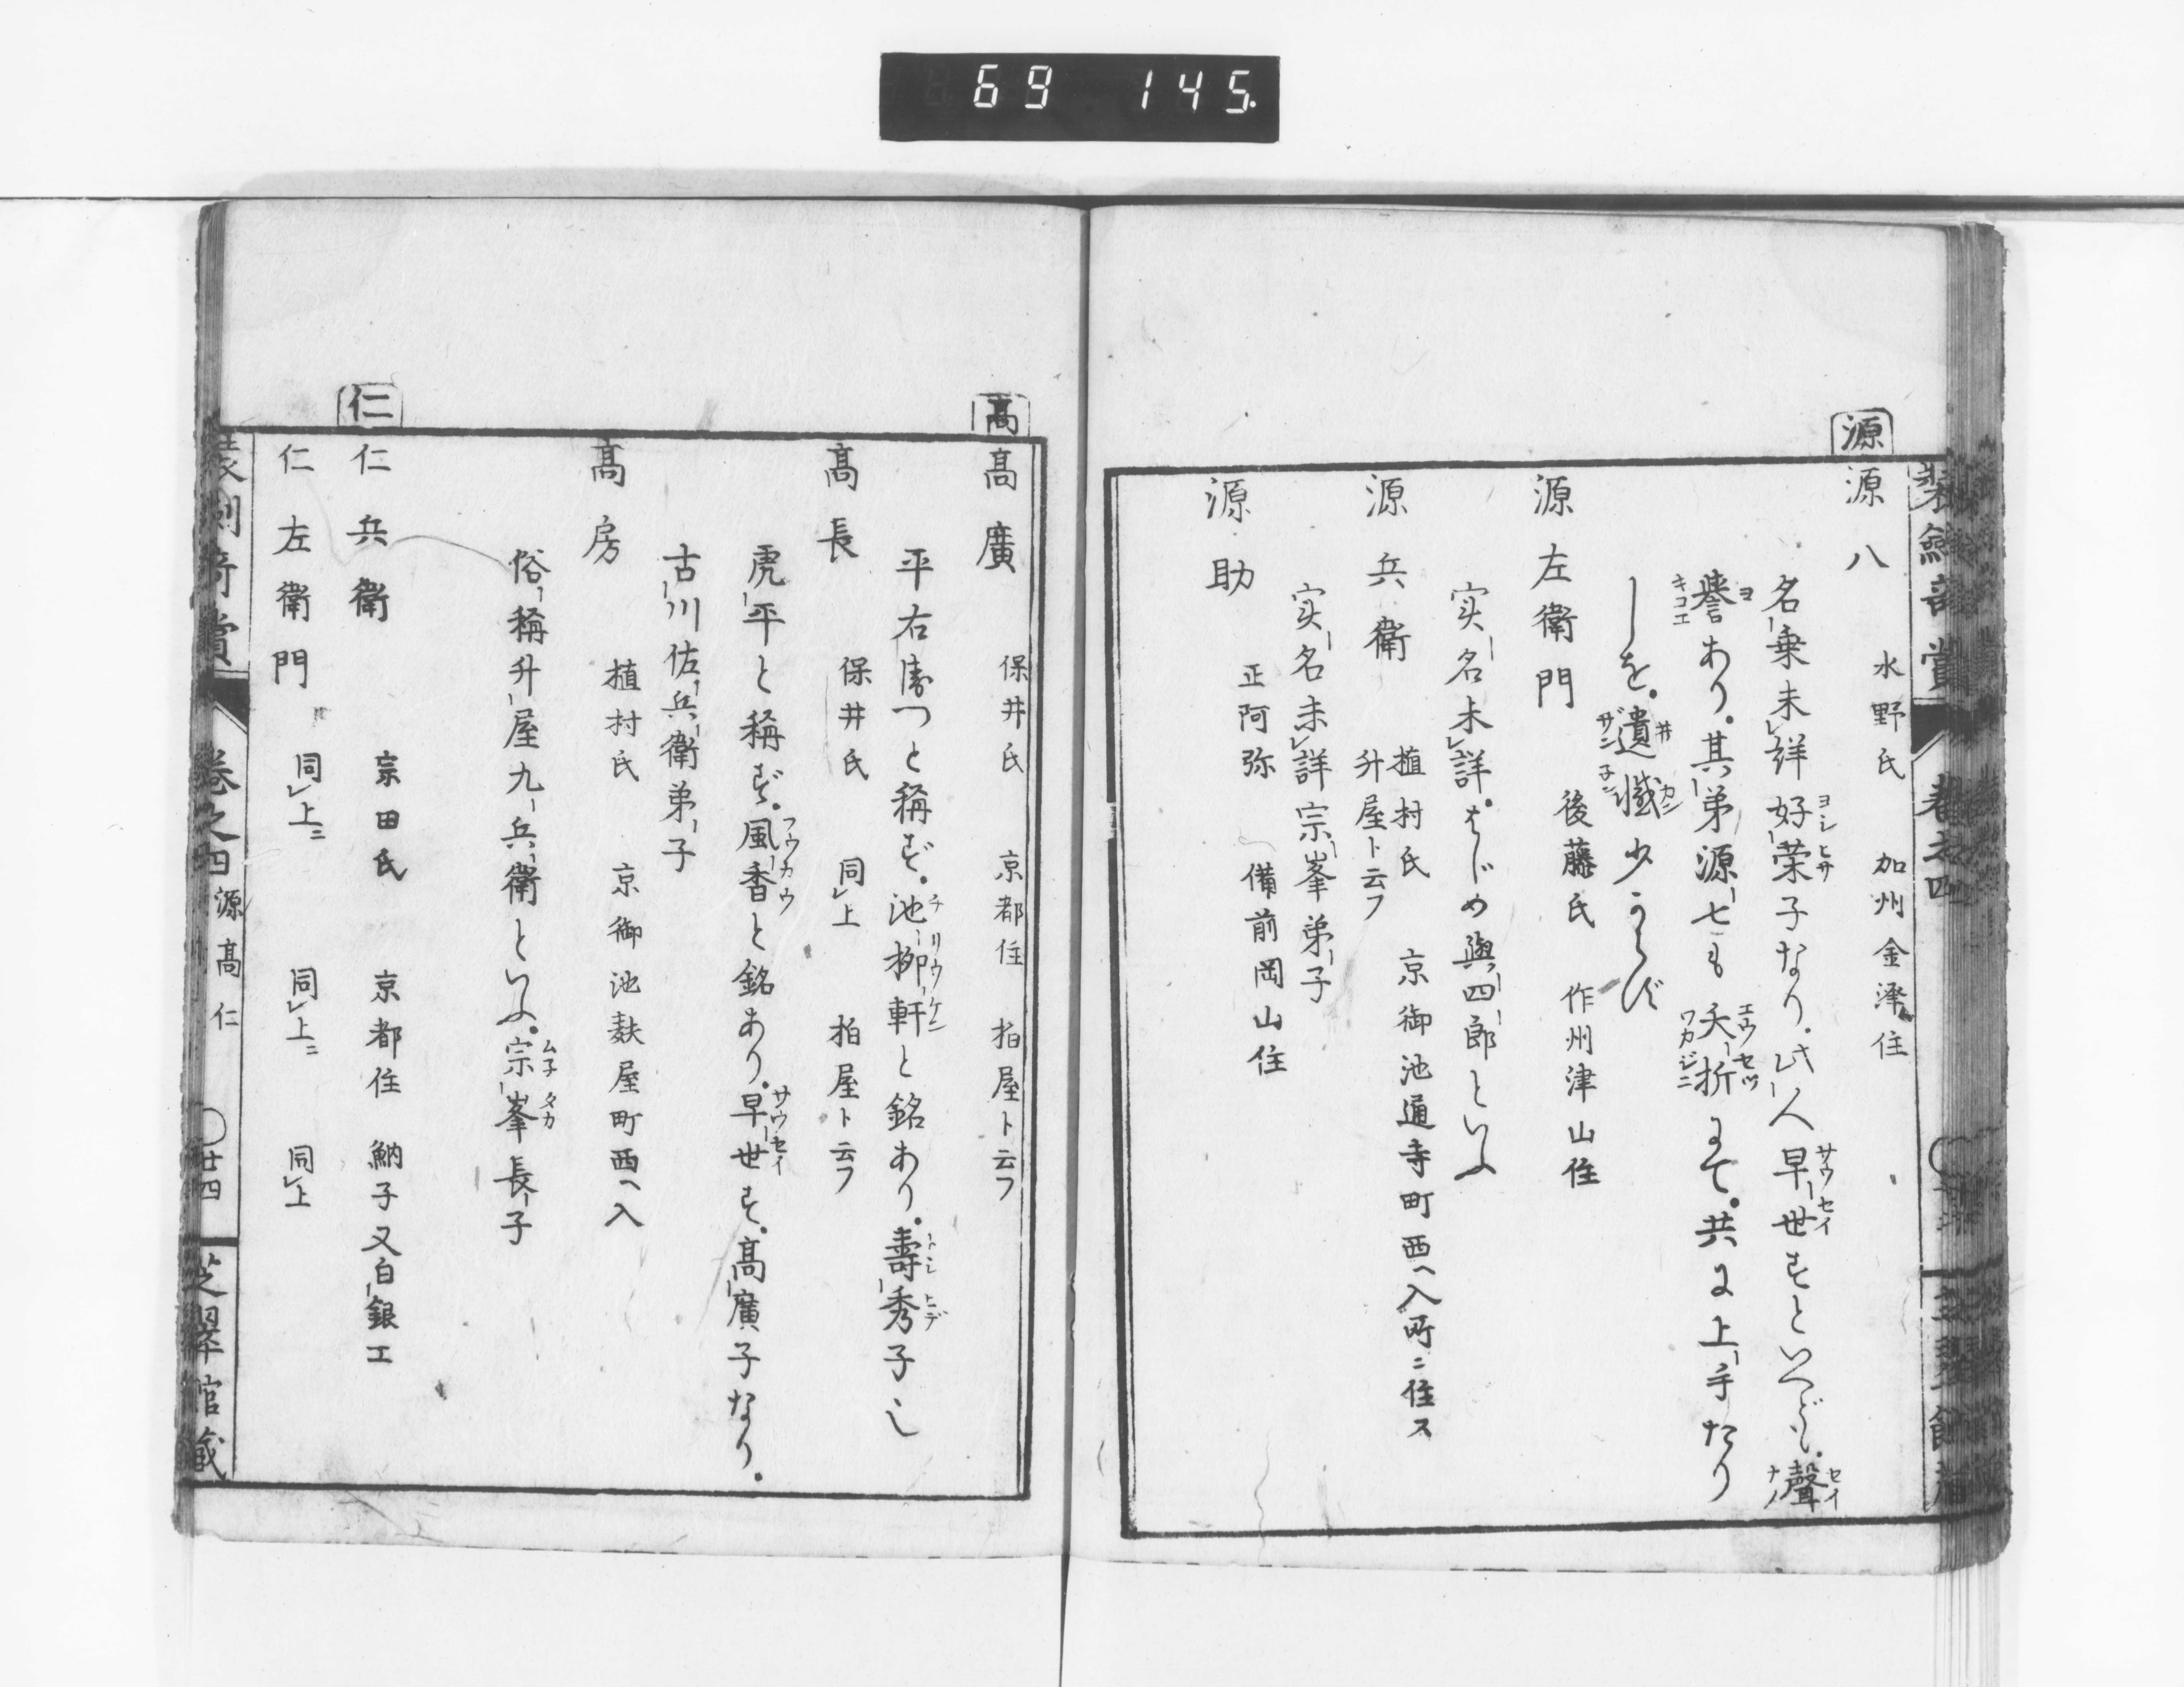 69 145
源
源八 水野氏 加州金澤住
名乗未詳好栄子なり。此人早世すといへども。聲
譽あり。其弟源七も夭折にて。共に上手たり
しを。遺憾少からず
源左衛門 後藤氏 作州津山住
実名未詳。はじめ與四郎といふ
源兵衛 植村氏 升屋ト云フ 京御池通寺町西ヘ入所ニ住ス
実名未詳宗峯弟子
源助 正阿弥 備前岡山住
高
高廣 保井氏 京都住 拍屋ト云フ
平右衛つと稱ず。池柳軒と銘あり。壽秀子し
高長 保井氏 同上 拍屋ト云フ
虎平と稱ず。風香と銘あり。早世す。高廣子なり。
古川佐兵衛弟子
高房 植村氏 京御池麸屋町西ヘ入
俗稱升屋九兵衛といふ。宗峯長子
仁
仁兵衛 宗田氏 京都住 魶子又白銀工
仁左衛門 同上ニ 同上ニ 同上
卷之四 源 高 仁 廿四 芝翠館蔵